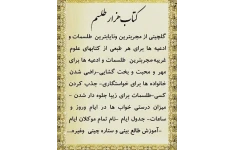 کتاب هزار طلسم
گلچینی از مجربترین ونایابترین طلسمات و
ادعیه ها برای هر طبعی از کتابهای علوم
غریبه-مجربترین طلسمات و ادعیه ها برای
مهر و محبت و بخت گشایی-راضی شدن
خانواده ها برای خواستگاری- جذب کردن
کسی-طلسمات برای زیبا جلوه دار شدن -
میزان درستی خواب ها در ایام وروز و
ساعات- جدول ایام -نام تمام دوکلان ایام
-آموزش طالع بینی و ستاره چینی وغیره...